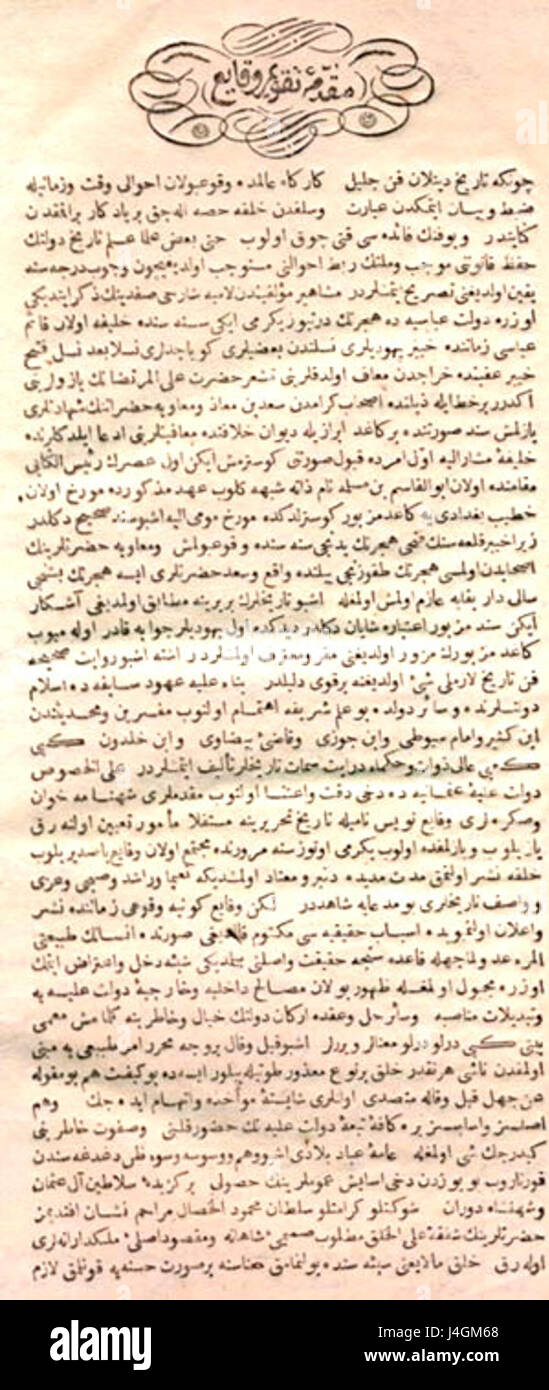 مقدمهٔ تقويم وقايع
چونكه تاريخ دينلان فن جليل كاركاه عالمده وقوعبولان احوالى وقت وزمانيله
ضبط وبيان ايتمكدن عبارت وسلفدن خلفه حصه اله جق بر يادكار برالمقدن
كنايتدر وبوفنك فائده سى قتى چوق اولوب حتى بعض علما علم تاريخ دولتك
حفظ قانونى موجب وملتك ربط احوالنى مستوجب اولديغيچون وجوب درجه سنه
يقين اولديغنى تصريح ايتملردر مشاهير مؤلفيندن لاميه شارحى صفدينك ذكر ايتديكى
اوزره دولت عباسيه ده هجرتك درتيوز يكرمى ايكى سنه سنده خليفه اولان قائم
عباسى زماننده خيبر يهوديلرى نسلندن بعضيلرى كويا جدلرى نسلا بعد نسل فتح
خيبر عقبنده خراجدن معاف اولدقلرينى مشعر حضرت على المرتضانك يازوارينى
اكدرر بر خط ايله ذيلنده اصحاب كرامدن سعد بن معاذ ومعاويه حضراتنك شهادتلرى
يازلمش سند صورتنده بر كاغد ابرازيله ديوان خلافتده معافيتلرينى ادعا ايلدكلرنده
خليفهٔ مشاراليه اول امرده قبول صورتى كوسترمش ايكن اول عصرك رئيس الكتابى
مقامنده اولان ابوالقاسم بن مسلمه نام ذاته شبهه كلوب عهد مذكورده مورخ اولان
خطيب بغدادى يه كاغد مزبور كوسترلدكده مورخ مومى اليه اشبو سند صحيح دكلدر
زيرا خيبر قلعه سنك فتحى هجرتك يدنجى سنه سنده وقوعبولمش ومعاويه حضرتلرينك
اصحابدن اولمسى هجرتك طقوزنجى ييلنده واقع وسعد حضرتلرى ايسه هجرتك بشنجى
سالى دار بقايه عازم اولمش اولمغله اشبو تاريخلرك بربرينه مطابق اولمديغى آشكار
ايكن سند مزبور اعتباره شايان دكلدر ديدكده اول يهوديلر جوابه قادر اوله ميوب
كاغد مزبورك مزور اولديغنى مقر ومعترف اولمشلردر اشته اشبو روايت صحيحه
فن تاريخ لازملى شئ اولديغنه بر قوى دليلدر بناء عليه عهود سابقه ده اسلام
دولتلرنده وسائر دولده بو علم شريفه اهتمام اولنوب مفسرين ومحدثيندن
ابن كثير وامام سيوطى وابن جوزى وقاضئ بيضاوى وابن خلدون كبى
كبى عالى ذوات وحكماء درايت سمات تاريخلر تأليف ايتملردر على الخصوص
دولت عليهٔ عثمانيه ده دخى دقت واعتنا اولنوب مقدملرى شهنامه خوان
وصكره لرى وقايع نويس ناميله تاريخ تحريرينه مستقلا مأمور تعيين اولنه رق
يازيلوب ويازلمقده اولوب يكرمى اوتوز سنه مرورنده مجتمع اولان وقايع باصديريلوب
خلقه نشر اولنمق مدت مديده دنبرو معتاد اولمشديكه نعيما وراشد وصبحى وعزى
وواصف تاريخلرى بو مدعايه شاهددر لكن وقايع كونيه وقوعى زماننده نشر
واعلان اولنميوبده اسباب حقيقيه سى مكتوم قالديغى صورتده انسانك طبيعتى
المرء عدو لما جهله قاعده سنجه حقيقت واصلنى بيلمديكى شيئه دخل واعتراض ايتمك
اوزره مجبول اولمغله ظهور بولان مصالح داخليه وخارجيهٔ دولت عليه يه
وتبديلات مناصبه وسائر حل وعقده اركان دولتك خيال وخاطرينه كلمامش معمى
يبنى كبى درلو درلو معنالر ويررلر اشبو قيل وقال بروجه محرر امر طبيعى يه مبنى
اولمغدن ناشى هر نقدر خلق بر نوع معذور طوتيله بيلور ايسه ده بو كيفيت هم بو مقوله
عن جهل قيل وقاله متصدى اولنلرى شايستهٔ مؤاخذه واتهام ايده جك وهم
اصلسز واساسسز يره كافهٔ تبعهٔ دولت عليه نك حضور قلبنى وصفوت خاطرينى
كيدرجك شى اولمغله عامهٔ عباد بلادى اشبو وهم ووسوسه وسوء ظن دغدغه سندن
قورتاروب بو يوزدن دخى آسايش عموميلرينك حصولى بركزيدهٔ سلاطين آل عثمان
وشهنشاه دوران شوكتلو كرامتلو سلطان محمود الخصال مراحم نشان افندمز
حضرتلرينك شفقت على الخلق مطلوب صميمى شاهانه ومقصود اصلئ ملكدارانه لرى
اوله رق خلق مالايعنى سيئه سنده بولنمامق معناسنه بر صورت حسنه يه قونلمق لازم
alamy stock photo
J4GM68
www.alamy.com